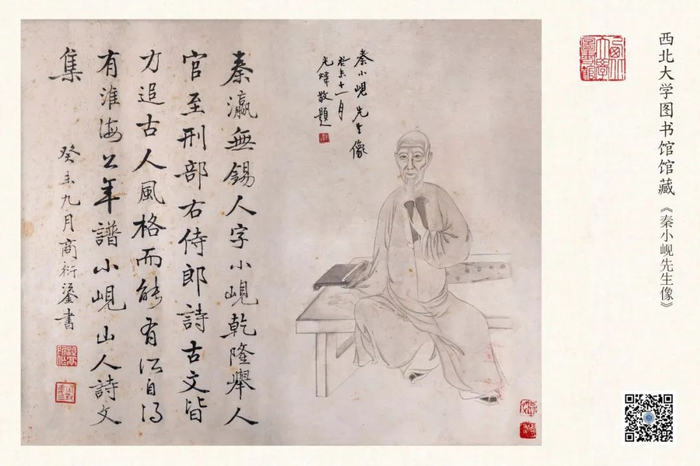 西北大学图书馆馆藏
《秦小岘先生像》
秦小峴先生像
癸未十一月
元暐敬題
秦瀛無錫人字小峴乾隆舉人
官至刑部右侍郎詩古文皆
力追古人風格而能有所自得
有淮海公年譜小峴山人詩文
集
癸未九月商衍鎏書